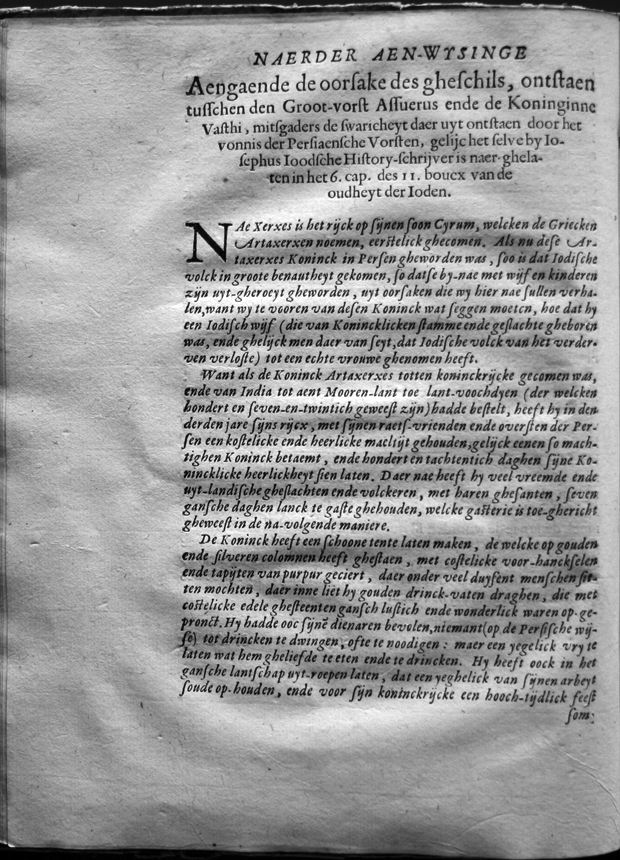 NAERDER AEN-WYSINGE
Aengaende de oorsake des gheschils, ontstaen
tusschen den Groot-vorst Assuerus ende de Koninginne
Vasthi, mitsgaders de swaricheyt daer uyt ontstaen door het
vonnis der Persiaensche Vorsten, gelijc het selve by Io-
sephus Ioodsche History-schrijver is naer-ghela-
ten in het 6. cap. des 11. boucx van de
oudheyt der Ioden.
NAe Xerxes is het rijck op sijnen soon Cyrum, welcken de Griecken
Artaxerxen noemen, eerstelick ghecomen. Als nu dese Ar-
taxerxes Koninck in Persen gheworden was, soo is dat Iodische
volck in groote benautheyt gekomen, so datse by-nae met wijf en kinderen
zijn uyt-gheroeyt gheworden, uyt oorsaken die wy hier nae sullen verha-
len, want wy te vooren van desen Koninck wat seggen moeten, hoe dat hy
een Iodisch wijf (die van Konincklicken stamme ende geslachte gheboren
was, ende ghelijck men daer van seyt, dat Iodische volck van het verder-
ven verloste) tot een echte vrouwe ghenomen heeft.
Want als de Koninck Artaxerxes totten koninckrijcke gecomen was,
ende van India tot aent Mooren-lant toe lant-voochdyen (der welcken
hondert en seven-en-twintich geweest zijn) hadde bestelt, heeft hy in den
derden jare sijns rijcx, met sijnen raets-vrienden ende oversten der Per-
sen een kostelicke ende heerlicke maeltijt gehouden, gelijck eenen so mach-
tighen Koninck betaemt, ende hondert en tachtentich daghen sijne Ko-
nincklicke heerlickheyt sien laten. Daer nae heeft hy veel vreemde ende
uyt-landische gheslachten ende volckeren, met haren ghesanten, seven
gansche daghen lanck te gaste ghehouden, welcke gasterie is toe-ghericht
gheweest in de na-volgende maniere.
De Koninck heeft een schoone tente laten maken, de welcke op gouden
ende silveren colomnen heeft ghestaen, met costelicke voor-hanckselen
ende tapijten van purpur geciert, daer onder veel duysent menschen sit-
ten mochten, daer inne liet hy gouden drinck-vaten draghen, die met
costelicke edele ghesteenten gansch lustich ende wonderlick waren op-ge-
pronct. Hy hadde ooc sijnē dienaren bevolen, niemant (op de Persische wij-
se) tot drincken te dwingen, ofte te noodigen: maer een yegelick vry te
laten wat hem gheliefde te eten ende te drincken. Hy heeft oock in het
gansche lantschap uyt-roepen laten, dat een yeghelick van sijnen arbeyt
soude op-houden, ende voor sijn koninckrijcke een hooch-tijdlick feest
som-